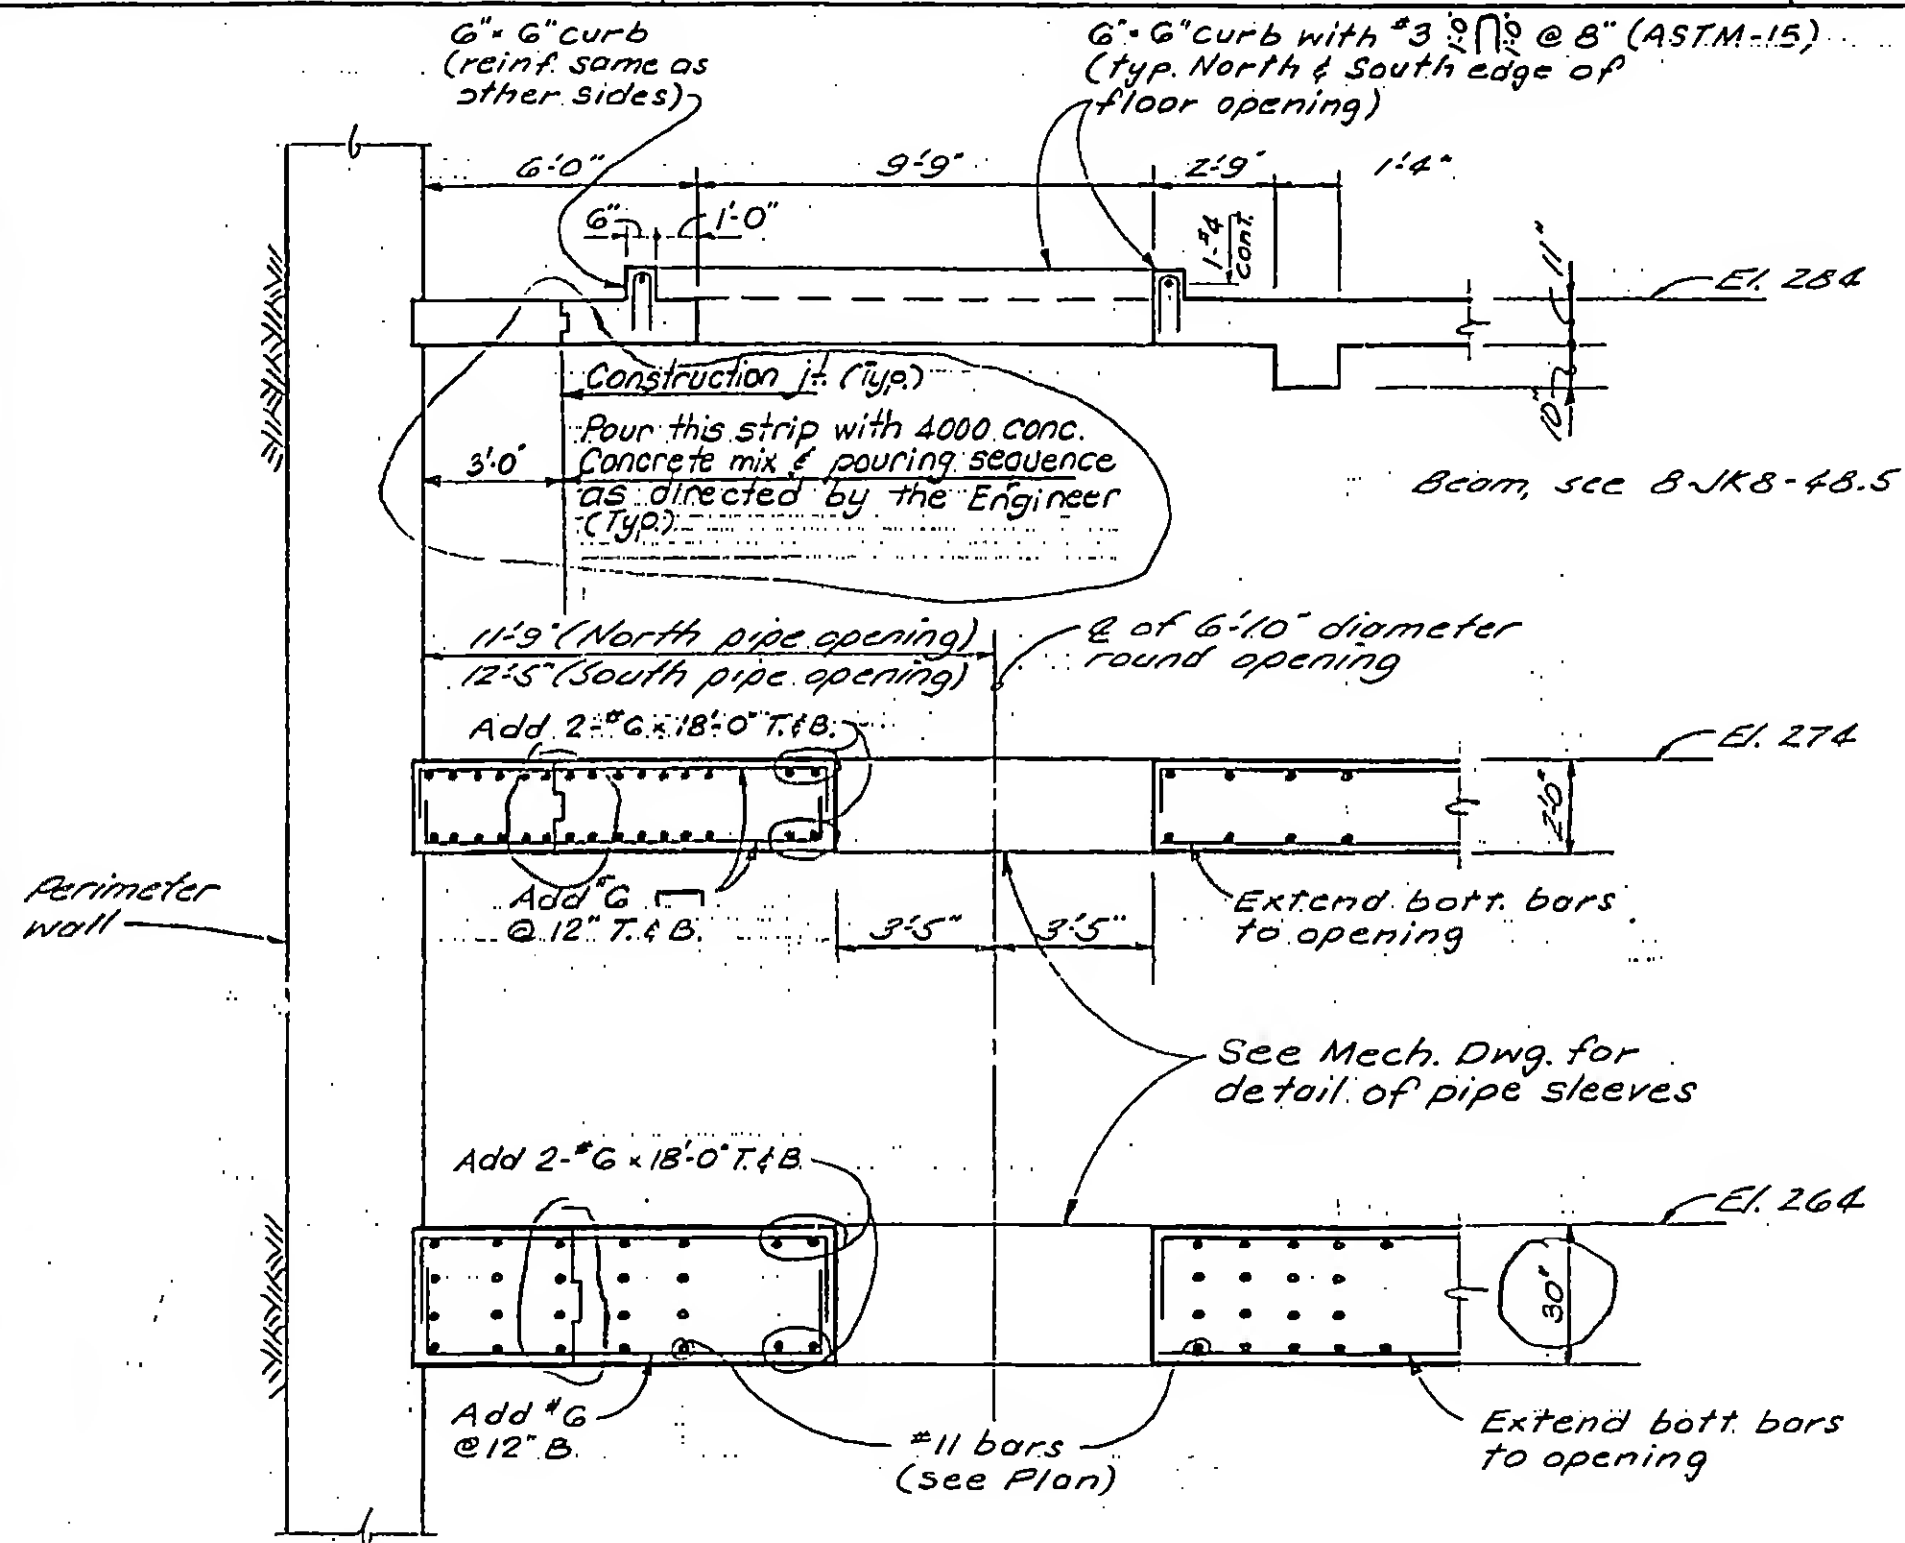 6"x 6" curb
(reinf. same as
other sides)
6"x 6" curb with #3 1'-0 1'-0 @ 8" (ASTM-15)
(typ. North & South edge of
floor opening)
6'-0"
9'-9"
2'-9"
1'-4"
6"
1'-0"
1-#4
cont.
11"
El. 284
10"
Construction jt. (Typ.)
Pour this strip with 4000 conc.
Concrete mix & pouring sequence
as directed by the Engineer
(Typ.)
3'-0"
Beam, see 8-JK8-48.5
11'-9" (North pipe opening)
12'-5" (South pipe opening)
℄ of 6'-10" diameter
round opening
Add 2-#6 x 18'-0" T. & B.
El. 274
2'-0"
Perimeter
wall
Add #6
@ 12" T. & B.
3'-5"
3'-5"
Extend bott. bars
to opening
See Mech. Dwg. for
detail of pipe sleeves
Add 2-#6 x 18'-0" T. & B.
El. 264
30"
Add #6
@ 12" B.
#11 bars
(see Plan)
Extend bott. bars
to opening